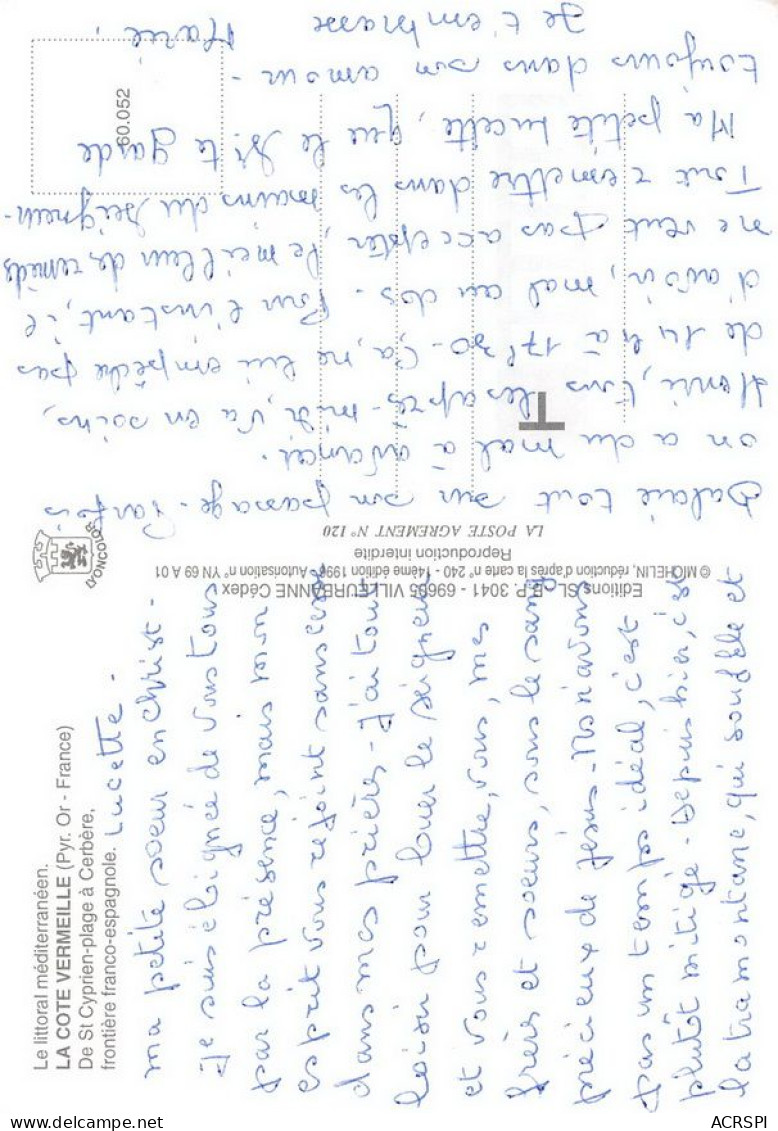 Le littoral méditerranéen.
LA COTE VERMEILLE (Pyr. Or - France)
De St Cyprien-plage à Cerbère,
frontière franco-espagnole.
Lucette -
ma petite soeur en christ -
Je suis éloignée de vous tous
par la présence, mais mon
esprit vous rejoint sans cesse
dans mes prières - J'ai tout
loisir pour louer le seigneur
et vous remettre, vous, mes
frères et soeurs, sous le sang
précieux de Jésus - Nous n'avons
pas un temps idéal, c'est
plutôt mitigé - Depuis hier, c'est
la tramontane, qui souffle et
Editions SL - B.P. 3041 - 69605 VILLEURBANNE Cédex
© MICHELIN, réduction d'après la carte n° 240 - 14ème édition 1996 - Autorisation n° YN 69 A 01
Reproduction interdite
LA POSTE AGREMENT N° 120
LYONCOLOR
balaie tout sur son passage - Parfois
on a du mal à avancer.
Henri, tous les après-midi, va en soins,
de 14 à 17h30 - ça, ne lui empêche pas
d'avoir, mal au dos - Pour l'instant, il
ne veut pas accepter, le meilleur des remèdes
Tout remettre dans les mains du seigneur -
Ma petite Lucette, que le Sr. te garde
toujours dans son amour -
Je t'embrasse
Marie.
60.052
T
ACRSPI